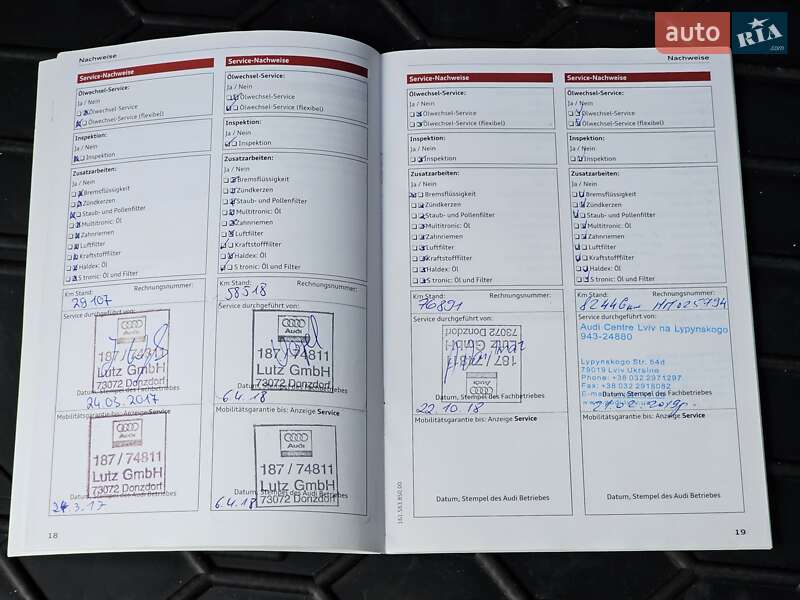 auto RIA .com
Nachweise
Service-Nachweise
Ölwechsel-Service:
Ja / Nein
Ölwechsel-Service
Ölwechsel-Service (flexibel)
Inspektion:
Ja / Nein
Inspektion
Zusatzarbeiten:
Ja / Nein
Bremsflüssigkeit
Zündkerzen
Staub- und Pollenfilter
Multitronic: Öl
Zahnriemen
Luftfilter
Kraftstofffilter
Haldex: Öl
S tronic: Öl und Filter
Km Stand: Rechnungsnummer:
29107
Service durchgeführt von:
Audi
187 / 74811
Lutz GmbH
73072 Donzdorf
Datum, Stempel des Fachbetriebes
24.03.2017
Mobilitätsgarantie bis: Anzeige Service
Audi
187 / 74811
Lutz GmbH
73072 Donzdorf
Datum, Stempel des Audi Betriebes
24.3.17
18
Service-Nachweise
Ölwechsel-Service:
Ja / Nein
Ölwechsel-Service
Ölwechsel-Service (flexibel)
Inspektion:
Ja / Nein
Inspektion
Zusatzarbeiten:
Ja / Nein
Bremsflüssigkeit
Zündkerzen
Staub- und Pollenfilter
Multitronic: Öl
Zahnriemen
Luftfilter
Kraftstofffilter
Haldex: Öl
S tronic: Öl und Filter
Km Stand: Rechnungsnummer:
58518
Service durchgeführt von:
Audi
187 / 74811
Lutz GmbH
73072 Donzdorf
Datum, Stempel des Fachbetriebes
6.4.18
Mobilitätsgarantie bis: Anzeige Service
Audi
187 / 74811
Lutz GmbH
73072 Donzdorf
Datum, Stempel des Audi Betriebes
6.4.18
Nachweise
Service-Nachweise
Ölwechsel-Service:
Ja / Nein
Ölwechsel-Service
Ölwechsel-Service (flexibel)
Inspektion:
Ja / Nein
Inspektion
Zusatzarbeiten:
Ja / Nein
Bremsflüssigkeit
Zündkerzen
Staub- und Pollenfilter
Multitronic: Öl
Zahnriemen
Luftfilter
Kraftstofffilter
Haldex: Öl
S tronic: Öl und Filter
Km Stand: Rechnungsnummer:
76891
Service durchgeführt von:
Audi
187 / 74811
Lutz GmbH
73072 Donzdorf
Datum, Stempel des Fachbetriebes
22 10 18
Mobilitätsgarantie bis: Anzeige Service
Datum, Stempel des Audi Betriebes
161.563.850.00
Service-Nachweise
Ölwechsel-Service:
Ja / Nein
Ölwechsel-Service
Ölwechsel-Service (flexibel)
Inspektion:
Ja / Nein
Inspektion
Zusatzarbeiten:
Ja / Nein
Bremsflüssigkeit
Zündkerzen
Staub- und Pollenfilter
Multitronic: Öl
Zahnriemen
Luftfilter
Kraftstofffilter
Haldex: Öl
S tronic: Öl und Filter
Km Stand: Rechnungsnummer:
Service durchgeführt von:
Audi Centre Lviv na Lypynskogo
943-24880
Lypynskogo Str. 54d
79019 Lviv Ukraine
Phone: +38 032 2971297
Fax: +38 032 2918082
Datum, Stempel des Fachbetriebes
Mobilitätsgarantie bis: Anzeige Service
Datum, Stempel des Audi Betriebes
19